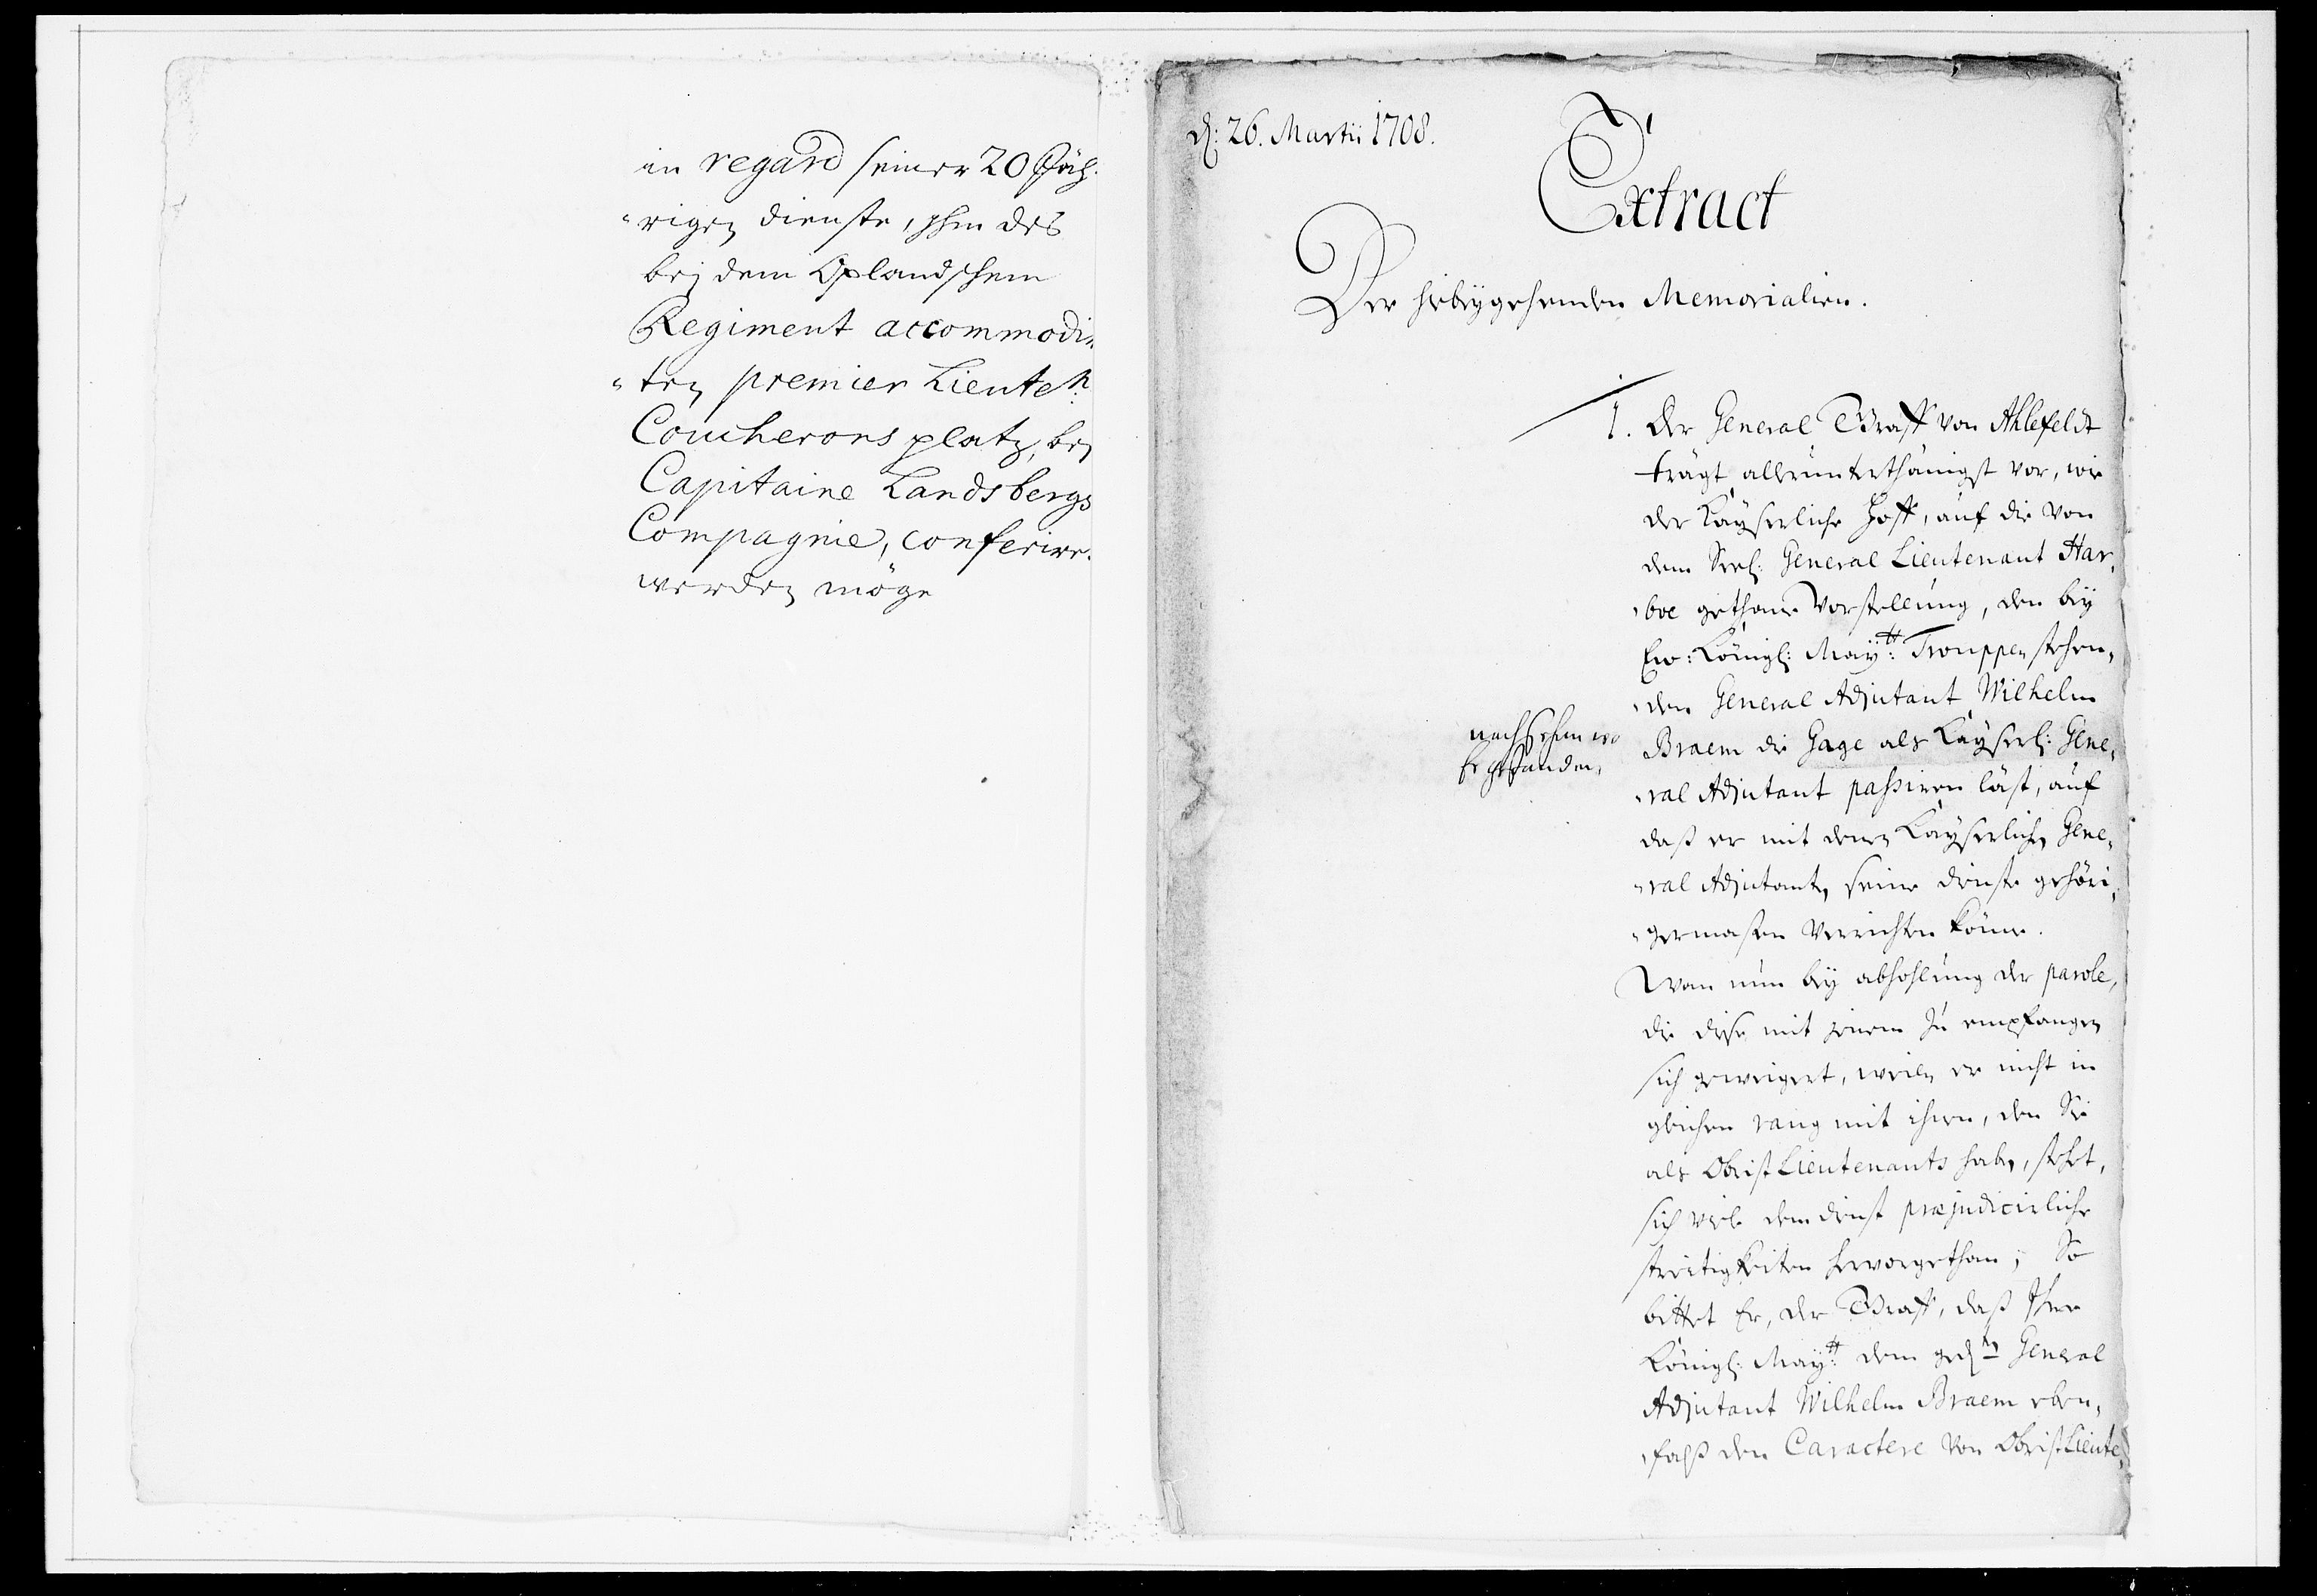 in regard seiner 20 Jäh-
rigen dienste, ihm des
bej dem Oplandschem
Regiment accommodir-
ten premier Lieuten:
Coucherons platz, bej
Capitaine Landsbergs
Compagnie, conferire.
werden möge
d: 26. Martii 1708.
Extract
Der hiebeygehenden Memorialien.
1. Der General Graff von Ahlefeldt
trägt allerunterthänigst vor, wie
der Kayserliche Hoff, auf die von
dem Seel: General Lieutenant Har-
boe gethane Vorstellung, den bey
Ew: Königl: Mayᵗᵗ: Trouppen stehen-
den General Adjutant Wilhelm
Braem die Gage als Kayserl: Gene-
ral Adjutant passiren läst, auf
daß er mit denen Kayserlichen Gene-
ral Adjutanten seine dienste gehöri-
germaßen verrichten könne.
Wan nun bey abhohlung der parole,
die diese mit jenem zu empfangen
sich geweigert, weilen er nicht in
gleichen rang mit ihnen, den Sie
als Obrist Lieutenants haben, stehet,
sich viele dem dienst præjudicirliche
streitigkeiten hervorgethan; So
bittet Er, der Graff, daß Ihre
Königl: Mayᵗᵗ: dem gedᵗᵉⁿ General
Adjutant Wilhelm Braem eben-
falß den Caractere von Obrist Lieute-
nachsehen wo
er gestanden,